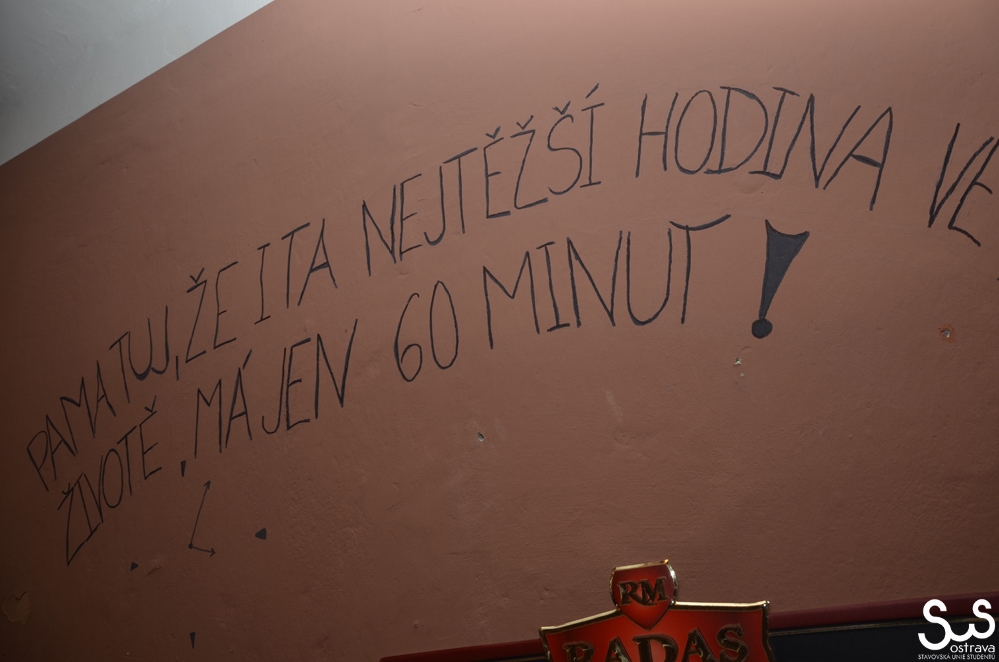 PAMATUJ, ŽE I TA NEJTĚŽŠÍ HODINA VE
ŽIVOTĚ, MÁ JEN 60 MINUT!
RM
RADAS
SUS
ostrava
STAVOVSKÁ UNIE STUDENTŮ